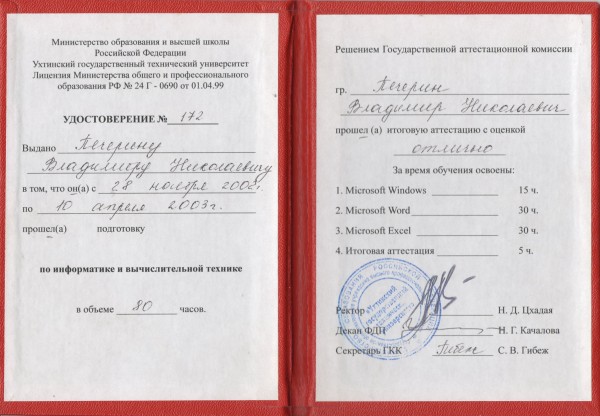 Министерство образования и высшей школы
Российской Федерации
Ухтинский государственный технический университет
Лицензия Министерства общего и профессионального
образования РФ № 24 Г - 0690 от 01.04.99
УДОСТОВЕРЕНИЕ № 172
Выдано Печерину
Владимиру Николаевичу
в том, что он(а) с 28 ноября 2002г.
по 10 апреля 2003г.
прошел(а) подготовку
по информатике и вычислительной технике
в объеме 80 часов.
Решением Государственной аттестационной комиссии
гр. Печерин
Владимир Николаевич
прошел (а) итоговую аттестацию с оценкой
отлично
За время обучения освоены:
1. Microsoft Windows 15 ч.
2. Microsoft Word 30 ч.
3. Microsoft Excel 30 ч.
4. Итоговая аттестация 5 ч.
Ректор Н. Д. Цхадая
Декан ФДП Н. Г. Качалова
Секретарь ГКК Гибеж С. В. Гибеж